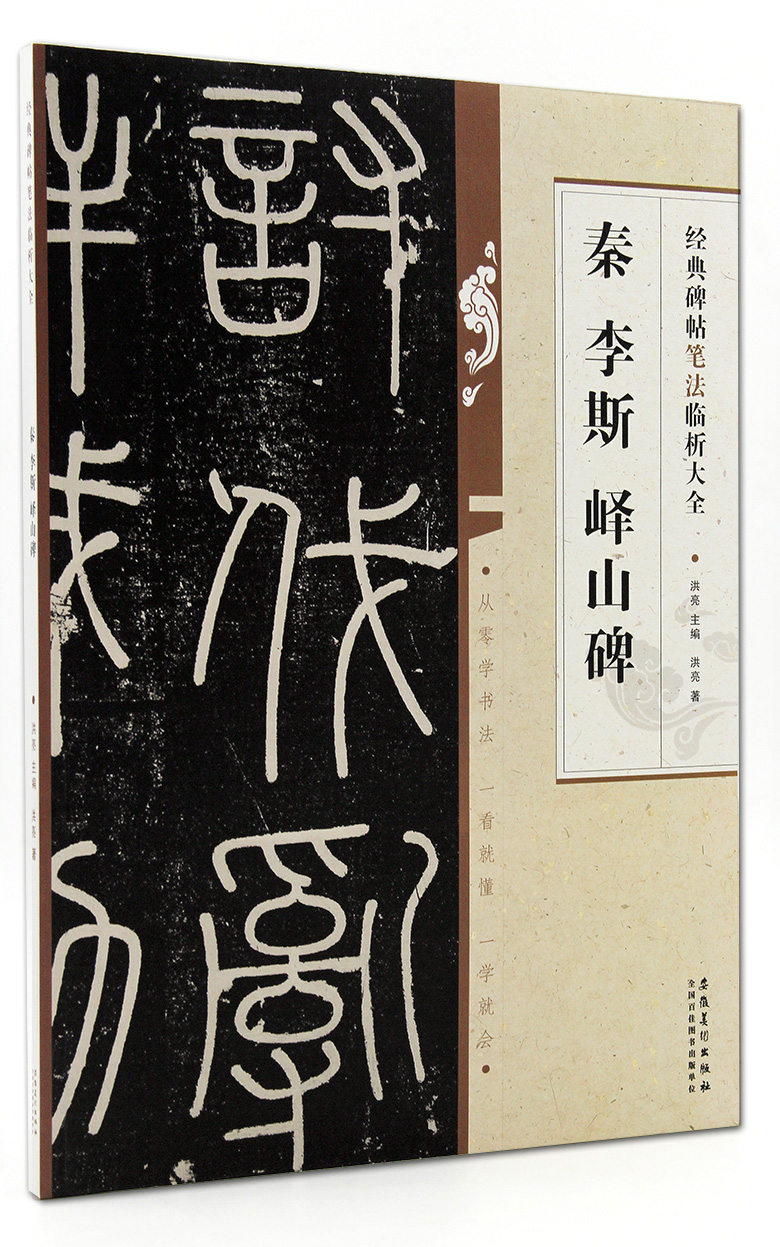 经典碑帖笔法临析大全
洪亮 主编 洪亮 著
秦 李斯 峄山碑
安徽美术出版社
全国百佳图书出版单位
• 从零学书法 一看就懂 一学就会 •
討伐亂
经典碑帖笔法临析大全
秦 李斯 峄山碑
洪亮 主编 洪亮 著